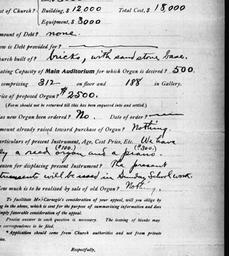 st of Church? Building, $12,000 Total Cost, $18,000
Equipment, $3000
mount of Debt? none
em is Debt provided for?
urch built of? bricks, with sandstone base.
ating Capacity of Main Auditorium for which Organ is desired? 500.
comprising 312 on floor and 188 in Gallery.
rice of proposed Organ? $2500.
(Form should not be returned till this has been enquired into and settled.)
as new Organ been ordered? No. Date of order?
mount already raised toward purchase of Organ? Nothing.
articulars of present Instrument, Age, Cost Price, Etc. We have
($100) ($300)
ly a reed organ and a piano.
eason for displacing present Instrument? The present
struments will be used in Sunday School work.
ow much is to be realised by sale of old Organ? Noth.
To facilitate Mr. Carnegie's consideration of your appeal, will you oblige by
ing in the above, which is sent for the purpose of summarising information and does
imply favorable consideration of the appeal.
Precise answer to each question is necessary. The leaving of blanks may
Application should come from Church authorities and not from private
Respectfully,